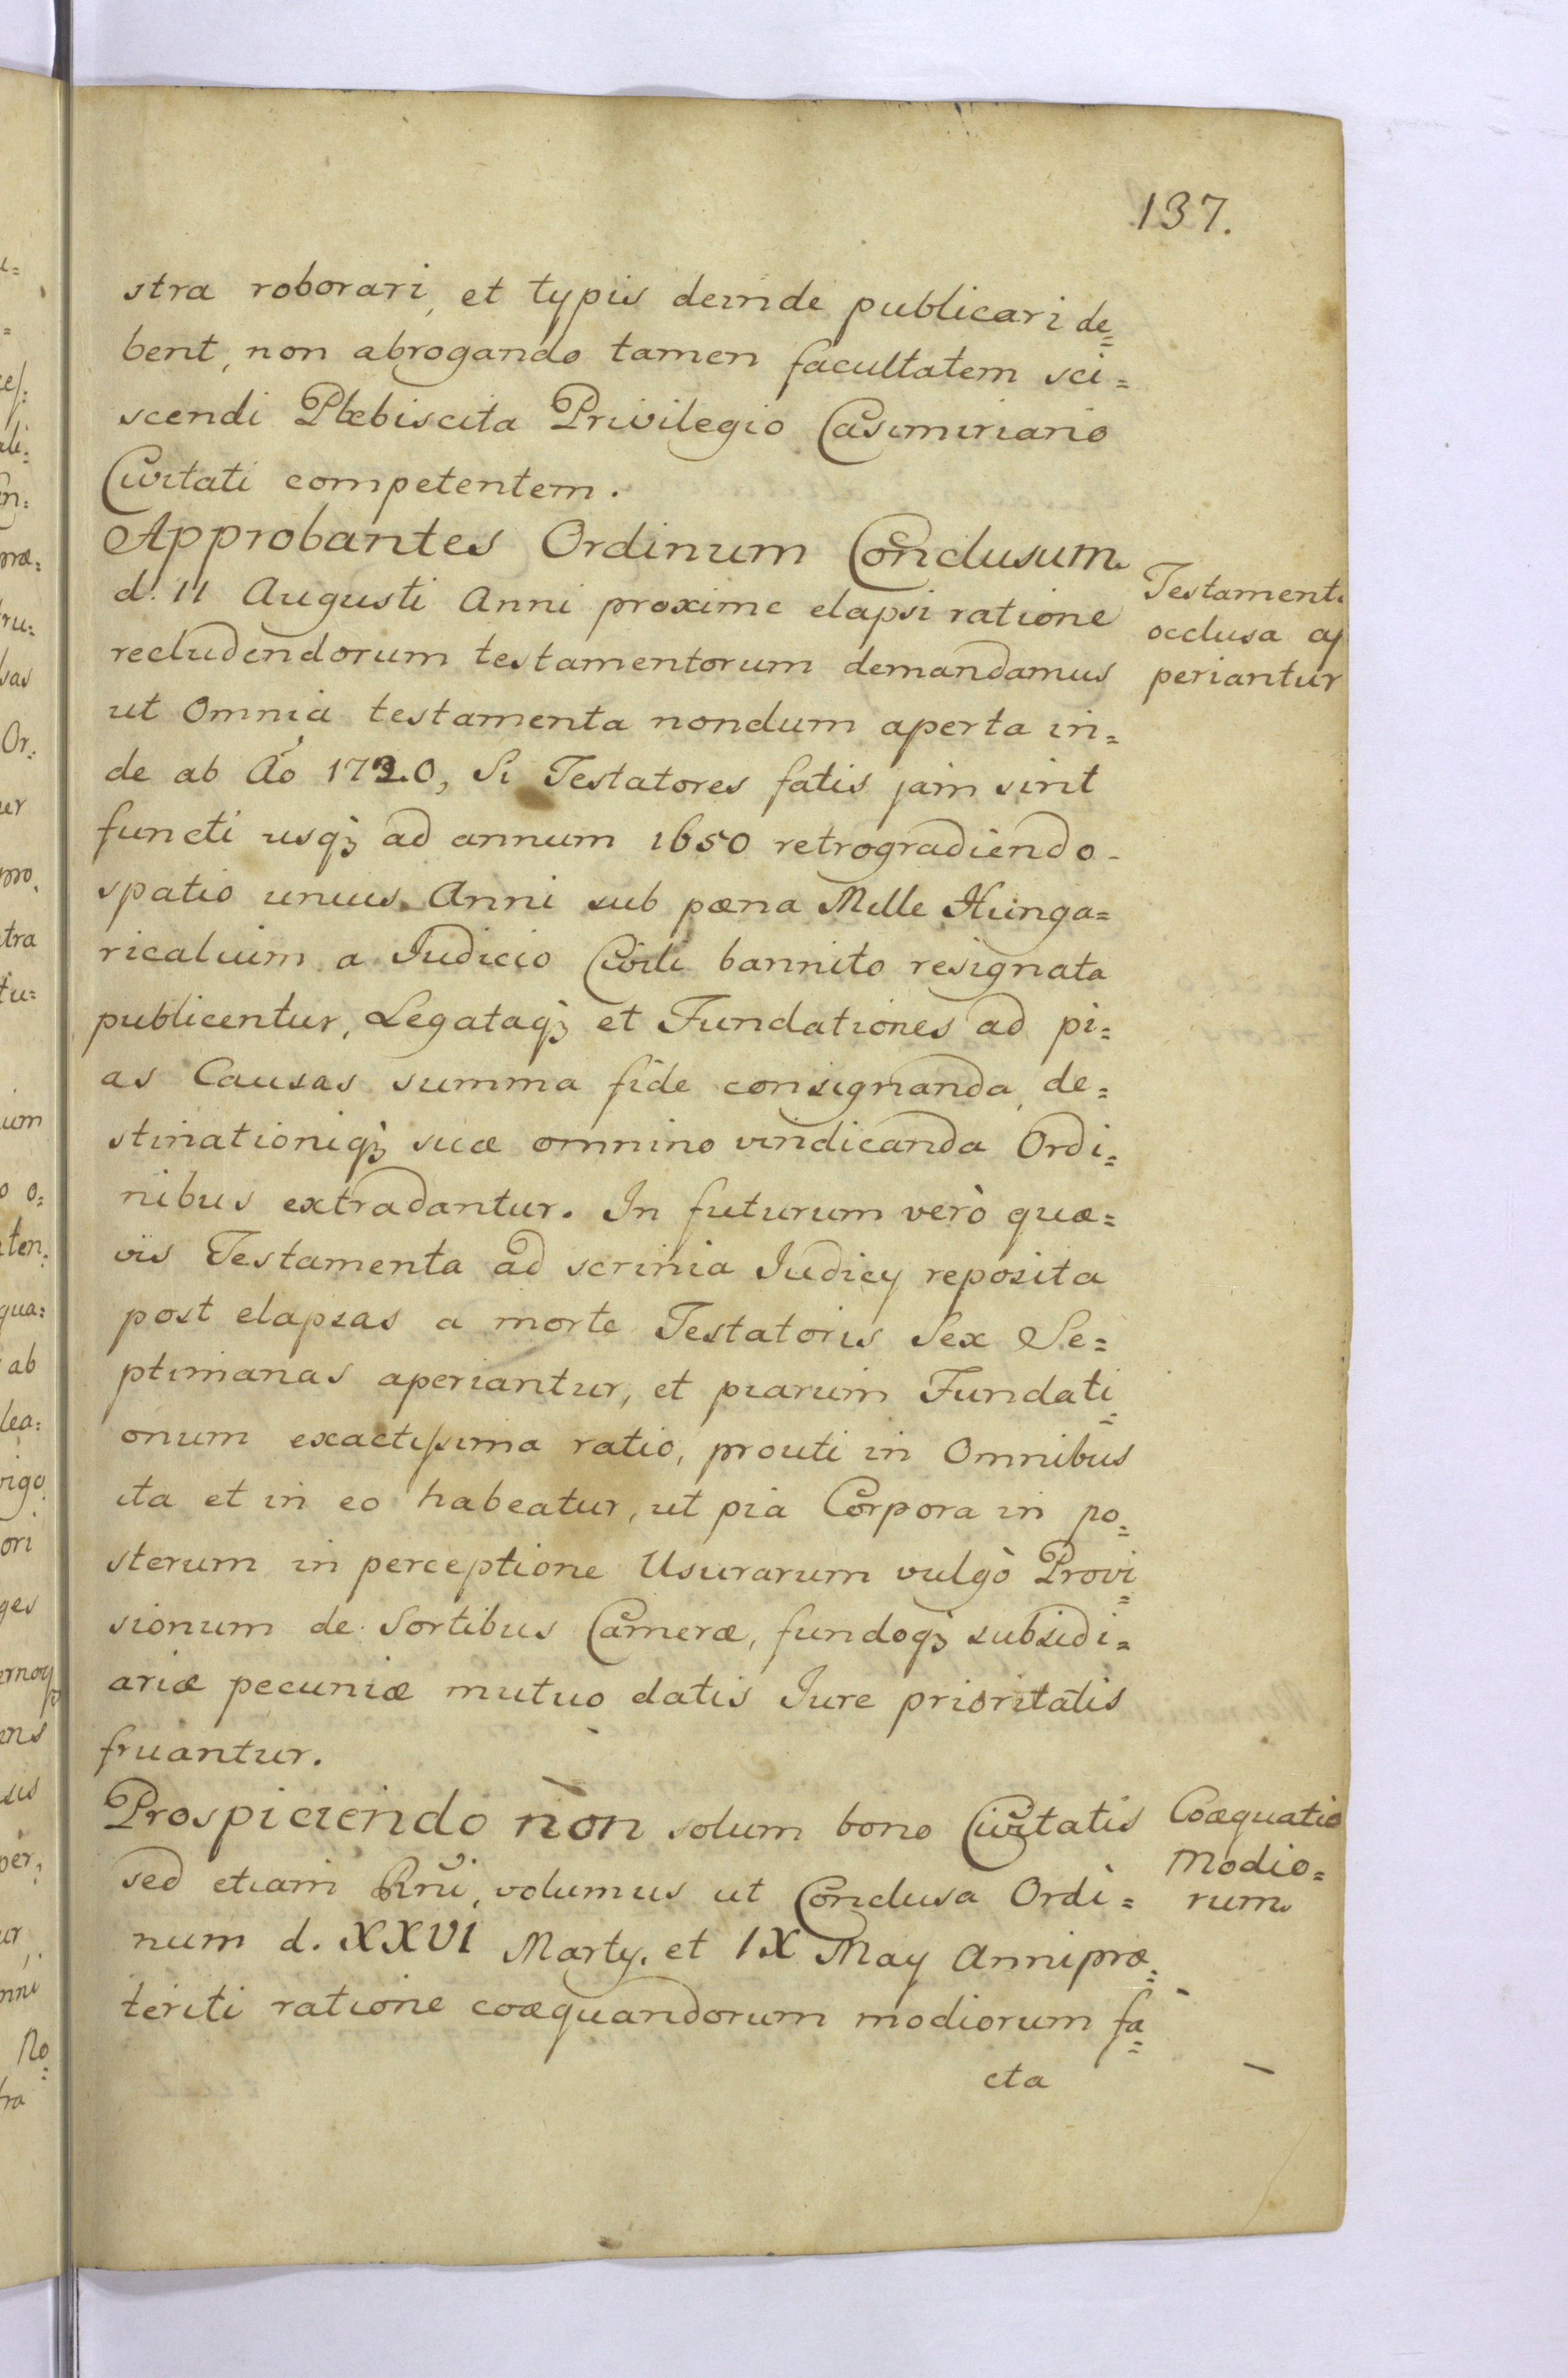 137.
stra roborari, et typis deinde publicari de=
bent, non abrogando tamen facultatem sci=
scendi Plebiscita Privilegio Casimiriano
Civitati competentem.
Approbantes Ordinum Conclusum
d. 11 Augusti Anni proxime elapsi ratione
recludendorum testamentorum demandamus
ut Omnia testamenta nondum aperta in=
de ab Ao 1720, Si Testatores fatis jam sint
functi usqꝫ ad annum 1650 retrogradiendo
spatio unius Anni sub pœna Mille Hunga=
ricalium a Judicio Civili bannito resignata
publicentur, Legataqꝫ et Fundationes ad pi=
as Causas summa fide consignanda, de=
stinationiqꝫ suæ omnino vindicanda Ordi=
nibus extradantur. In futurum verò quæ=
vis Testamenta ad scrinia Judicy reposita
post elapsas a morte Testatoris Sex Se=
ptimanas aperiantur, et piarum Fundati=
onum exactissima ratio, prouti in Omnibus
ita et in eo habeatur, ut pia Corpora in po=
sterum in perceptione Usurarum vulgò Provi=
sionum de Sortibus Cameræ, fundoqꝫ subsidi=
ariæ pecuniæ mutuo datis Jure prioritatis
fruantur.
Prospiciendo non solum bono Civitatis
sed etiam Rni, volumus ut Conclusa Ordi=
num d. XXVI Marty. et IX May Anni præ=
teriti ratione coæquandorum modiorum fa=
cta
Testamenta
occlusa a
periantur
Coæquatio
Modio=
rum